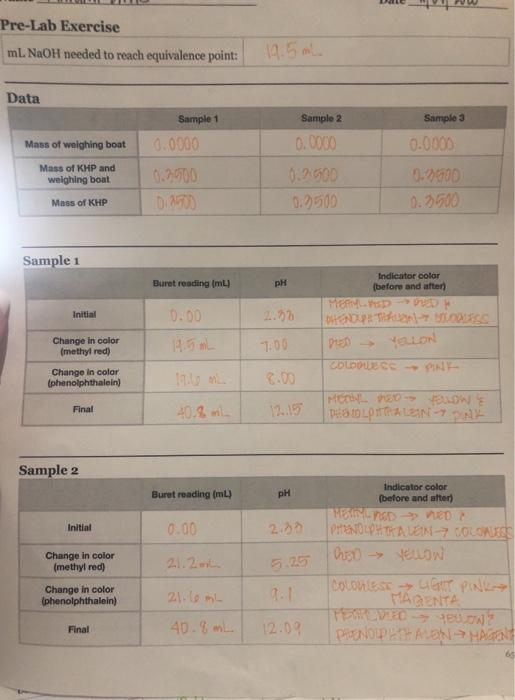 Pre-Lab Exercise
mL NaOH needed to reach equivalence point: 19.5 mL
Data
Sample 1 Sample 2 Sample 3
Mass of weighing boat 0.0000 0.0000 0.0000
Mass of KHP and weighing boat 0.3500 0.3500 0.3500
Mass of KHP 0.3500 0.3500 0.3500
Sample 1
Buret reading (mL) pH Indicator color (before and after)
Initial 0.00 2.33 METHYL RED → RED &
PHENOLPHTHALEIN → COLORLESS
Change in color (methyl red) 19.5 mL 7.00 RED → YELLOW
Change in color (phenolphthalein) 19.6 mL 8.00 COLORLESS → PINK
Final 40.8 mL 12.15 METHYL RED → YELLOW &
PHENOLPHTHALEIN → PINK
Sample 2
Buret reading (mL) pH Indicator color (before and after)
Initial 0.00 2.33 METHYL RED → RED &
PHENOLPHTHALEIN → COLORLESS
Change in color (methyl red) 21.2 mL 5.25 RED → YELLOW
Change in color (phenolphthalein) 21.6 mL 9.1 COLORLESS → LIGHT PINK →
MAGENTA
Final 40.8 mL 12.09 METHYL RED → YELLOW &
PHENOLPHTHALEIN → MAGENT